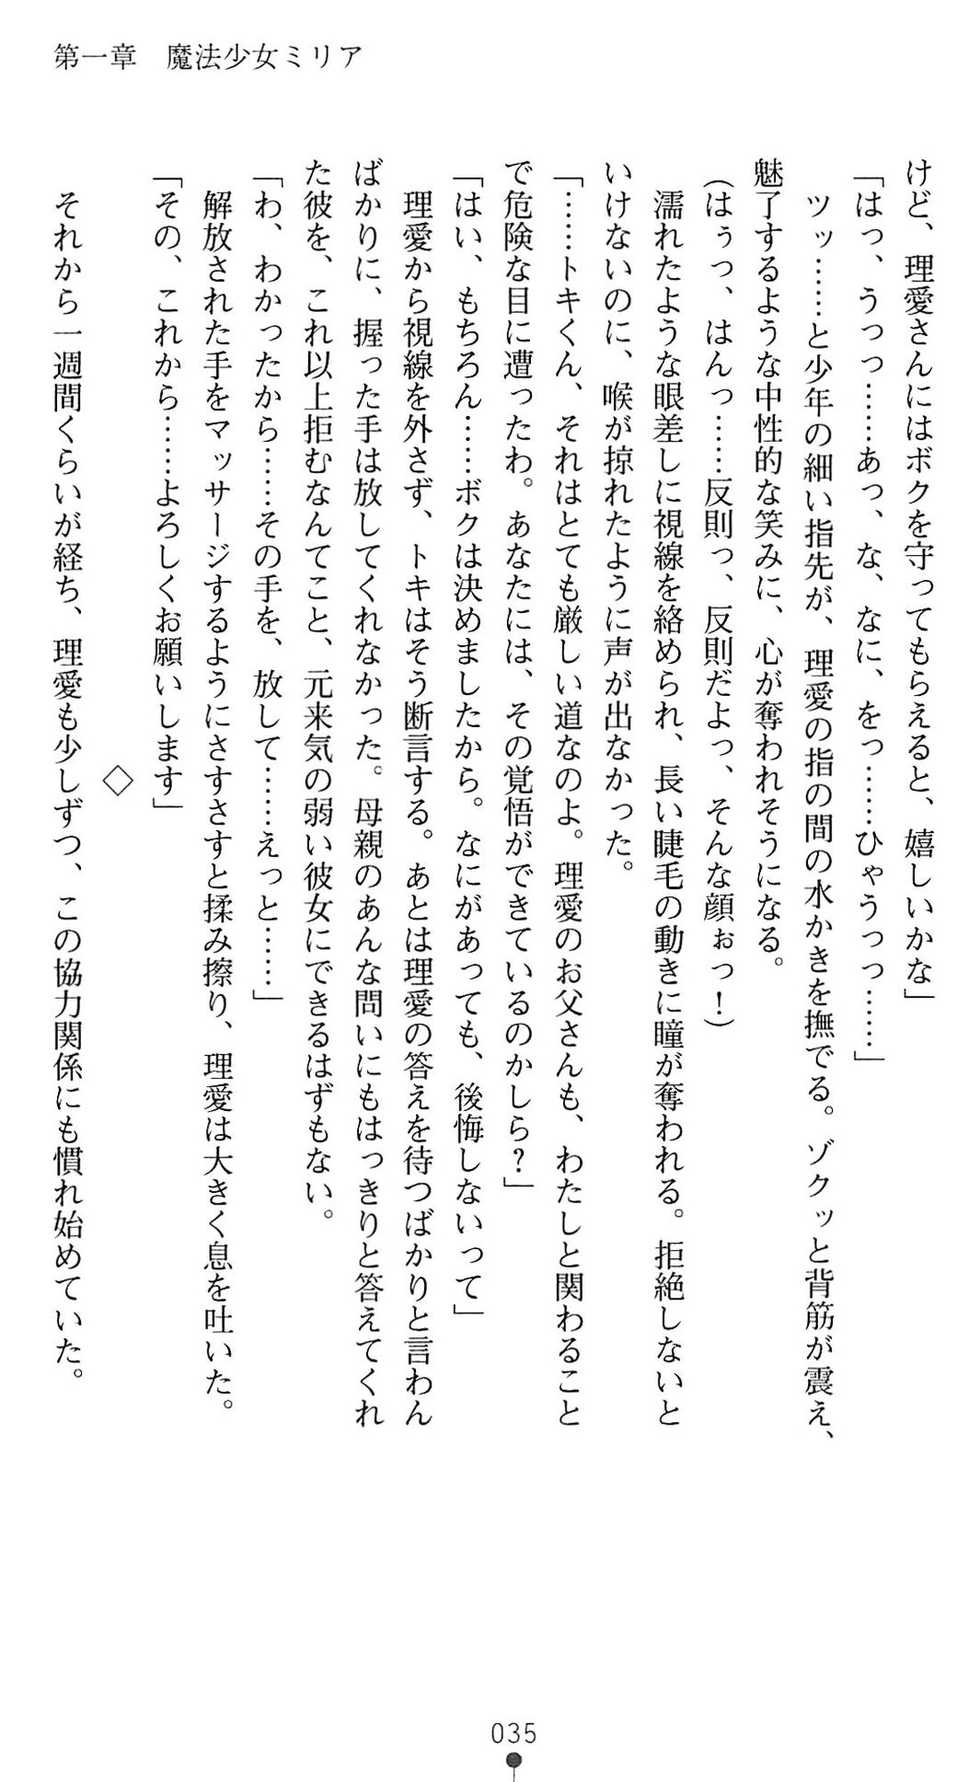 第一章　魔法少女ミリア
けど、理愛さんにはボクを守ってもらえると、嬉しいかな」
「はっ、うっっ……あっ、な、なに、をっ……ひゃうっっ……」
　ツッ……と少年の細い指先が、理愛の指の間の水かきを撫でる。ゾクッと背筋が震え、
魅了するような中性的な笑みに、心が奪われそうになる。
（はぅっ、はんっ……反則っ、反則だよっ、そんな顔ぉっ！）
　濡れたような眼差しに視線を絡められ、長い睫毛の動きに瞳が奪われる。拒絶しないと
いけないのに、喉が掠れたように声が出なかった。
「……トキくん、それはとても厳しい道なのよ。理愛のお父さんも、わたしと関わること
で危険な目に遭ったわ。あなたには、その覚悟ができているのかしら？」
「はい、もちろん……ボクは決めましたから。なにがあっても、後悔しないって」
　理愛から視線を外さず、トキはそう断言する。あとは理愛の答えを待つばかりと言わん
ばかりに、握った手は放してくれなかった。母親のあんな問いにもはっきりと答えてくれ
た彼を、これ以上拒むなんてこと、元来気の弱い彼女にできるはずもない。
「わ、わかったから……その手を、放して……えっと……」
　解放された手をマッサージするようにさすさすと揉み擦り、理愛は大きく息を吐いた。
「その、これから……よろしくお願いします」
◇
　それから一週間くらいが経ち、理愛も少しずつ、この協力関係にも慣れ始めていた。
035